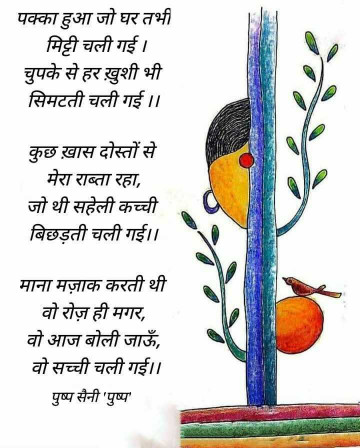 पक्का हुआ जो घर तभी
मिट्टी चली गई ।
चुपके से हर ख़ुशी भी
सिमटती चली गई ।।
कुछ ख़ास दोस्तों से
मेरा राब्ता रहा,
जो थी सहेली कच्ची
बिछड़ती चली गई।।
माना मज़ाक करती थी
वो रोज़ ही मगर,
वो आज बोली जाऊँ,
वो सच्ची चली गई।।
पुष्प सैनी 'पुष्प'